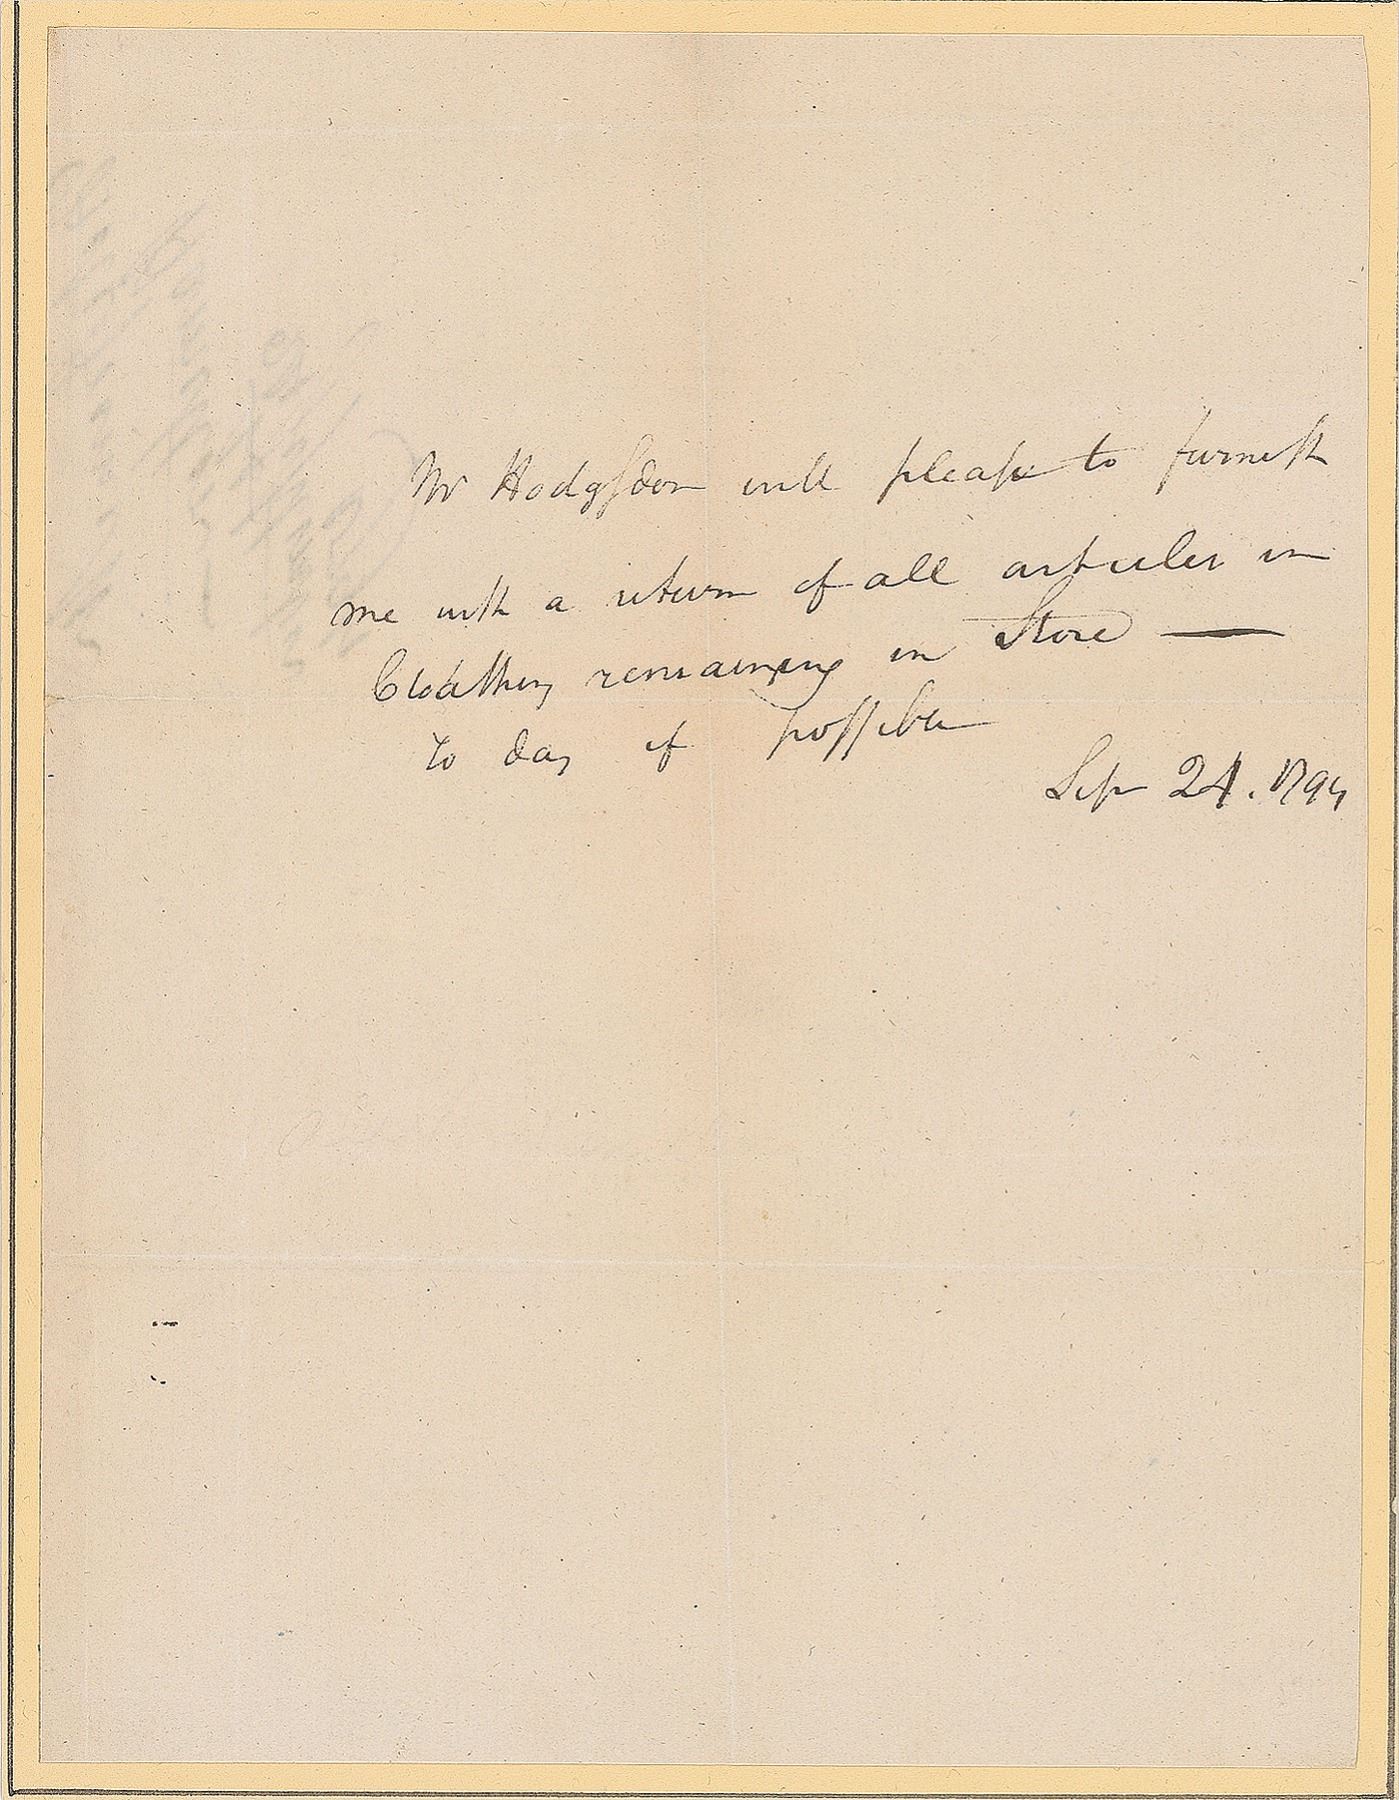 Mr Hodgsdon will please to furnish
me with a return of all articles in
Cloathing remaining in Store —
to day if possible
Sep 24. 1794